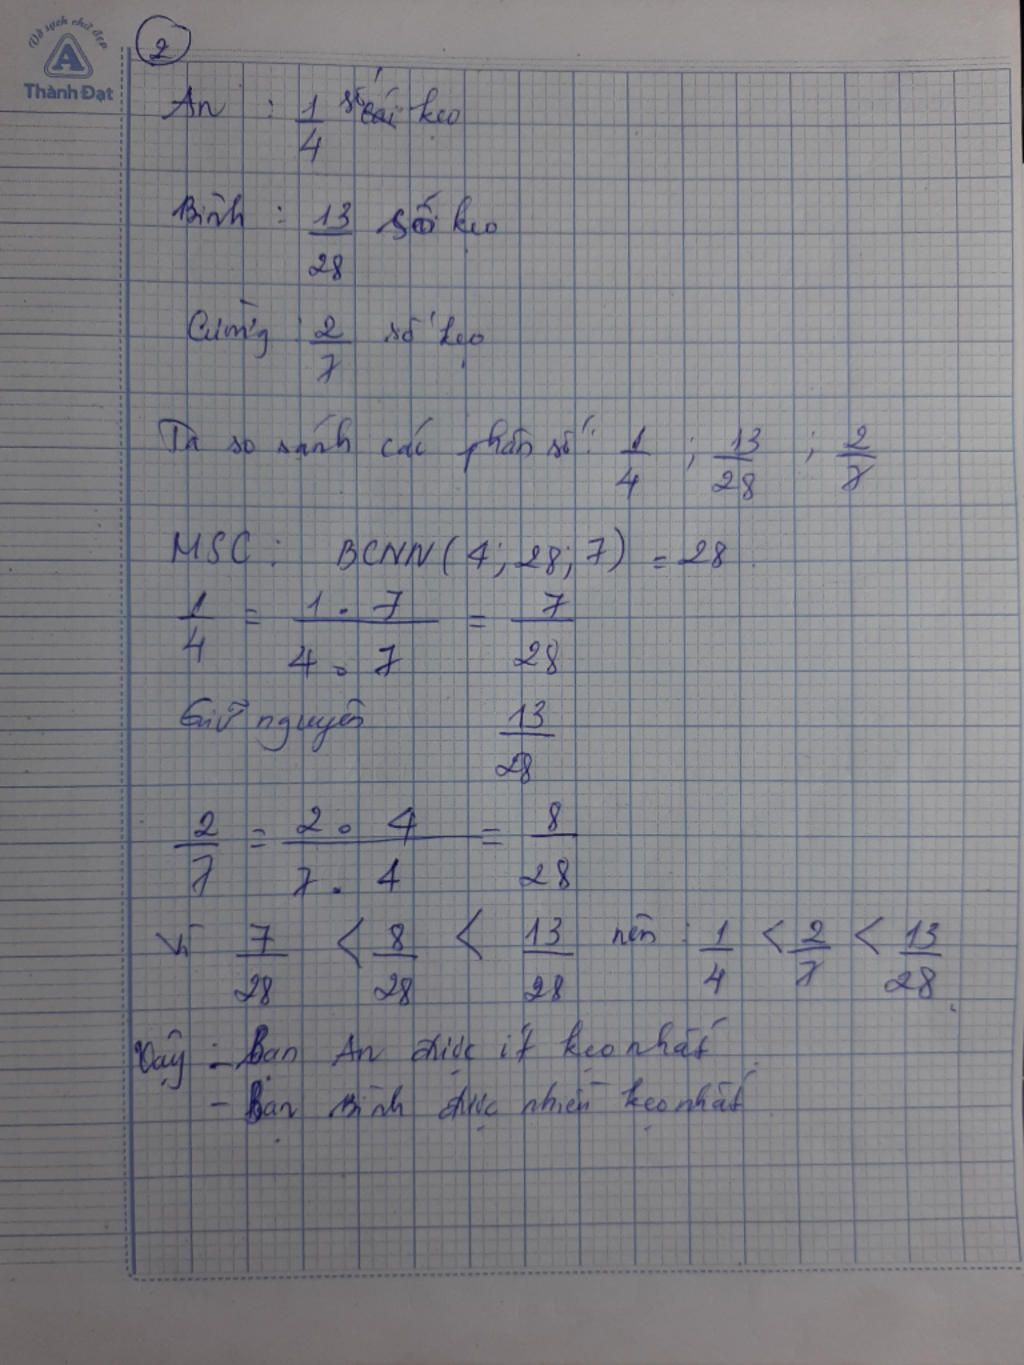 Vở sạch chữ đẹp
A
Thành Đạt
2
An : 1/4 số kẹo
Bình : 13/28 số kẹo
Cường : 2/7 số kẹo
Ta so sánh các phân số : 1/4 ; 13/28 ; 2/7
MSC : BCNN(4; 28; 7) = 28
1/4 = 1 . 7 / 4 . 7 = 7/28
Giữ nguyên 13/28
2/7 = 2 . 4 / 7 . 4 = 8/28
Vì 7/28 < 8/28 < 13/28 nên : 1/4 < 2/7 < 13/28.
Vậy : - Bạn An được ít kẹo nhất
- Bạn Bình được nhiều kẹo nhất